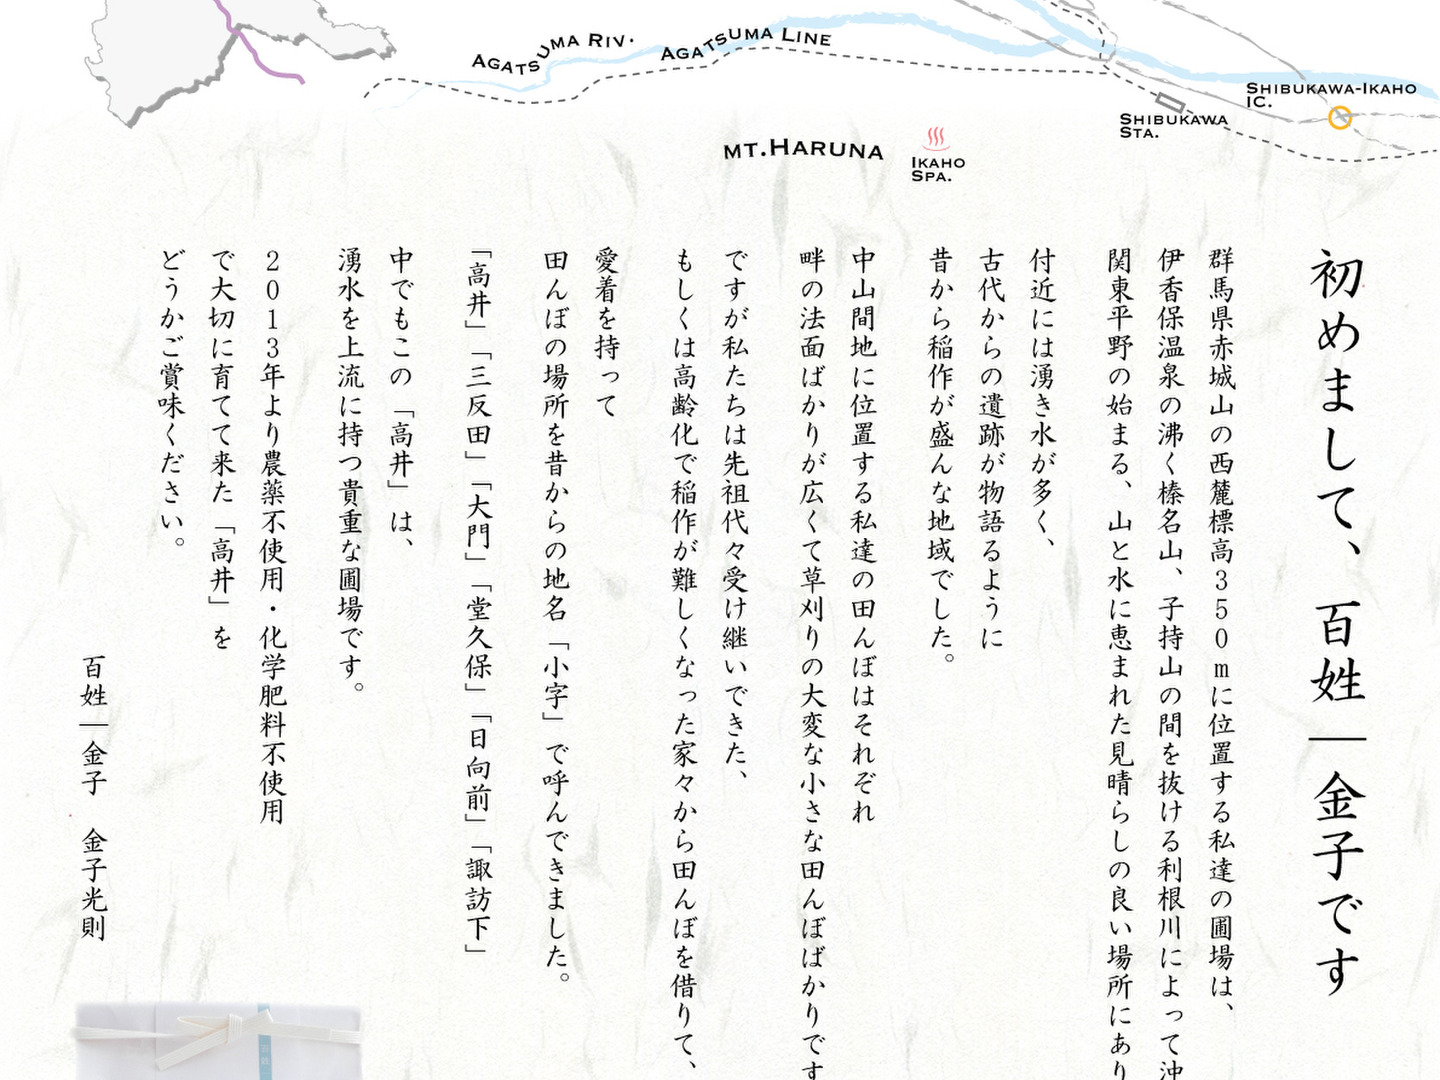 AGATSUMA RIV.
AGATSUMA LINE
SHIBUKAWA-IKAHO
IC.
SHIBUKAWA
STA.
MT.HARUNA
IKAHO
SPA.
初めまして、百姓｜金子です
群馬県赤城山の西麓標高350mに位置する私達の圃場は、
伊香保温泉の沸く榛名山、子持山の間を抜ける利根川によって沖
関東平野の始まる、山と水に恵まれた見晴らしの良い場所にあり
付近には湧き水が多く、
古代からの遺跡が物語るように
昔から稲作が盛んな地域でした。
中山間地に位置する私達の田んぼはそれぞれ
畔の法面ばかりが広くて草刈りの大変な小さな田んぼばかりです
ですが私たちは先祖代々受け継いできた、
もしくは高齢化で稲作が難しくなった家々から田んぼを借りて、
愛着を持って
田んぼの場所を昔からの地名「小字」で呼んできました。
「高井」「三反田」「大門」「堂久保」「日向前」「諏訪下」
中でもこの「高井」は、
湧水を上流に持つ貴重な圃場です。
2013年より農薬不使用・化学肥料不使用
で大切に育てて来た「高井」を
どうかご賞味ください。
百姓｜金子　金子光則